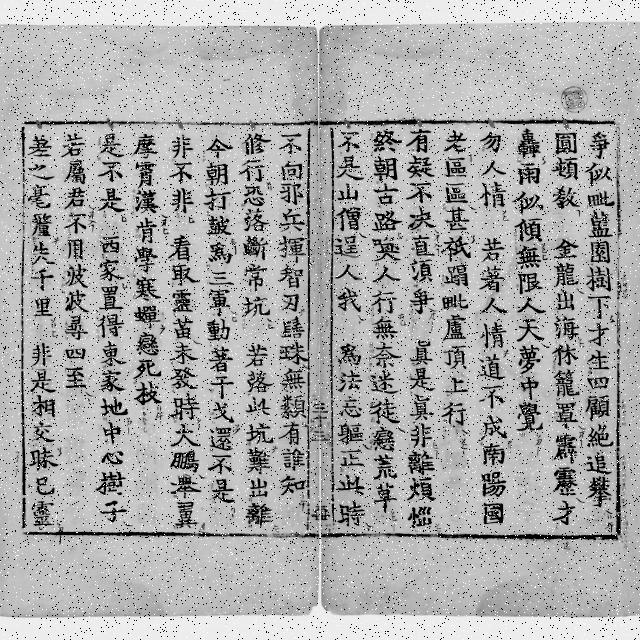 爭似毗藍園樹下才生四顧絕追攀
圓頓教 金龍出海休籠罩霹靂才
轟雨似傾無限人天夢中覺
勿人情 若著人情道不成南陽國
老區區甚祇蹋毗盧頂上行
有疑不决直須爭 眞是眞非離煩惱
終朝古路與人行無奈迷徒戀荒草
不是山僧逞人我 爲法忘軀正此時
不向邪兵揮智刃 珠無纇有誰知
修行恐落斷常坑 若落此坑難出離
今朝打皷爲三軍動著干戈還不是
非不非 看取靈苗未發時大鵬舉翼
摩霄漢肯學寒蟬戀死枝
是不是 西家置得東家地中心樹子
若屬君不用波波尋四至
差之毫釐失千里 非是相交昧己靈